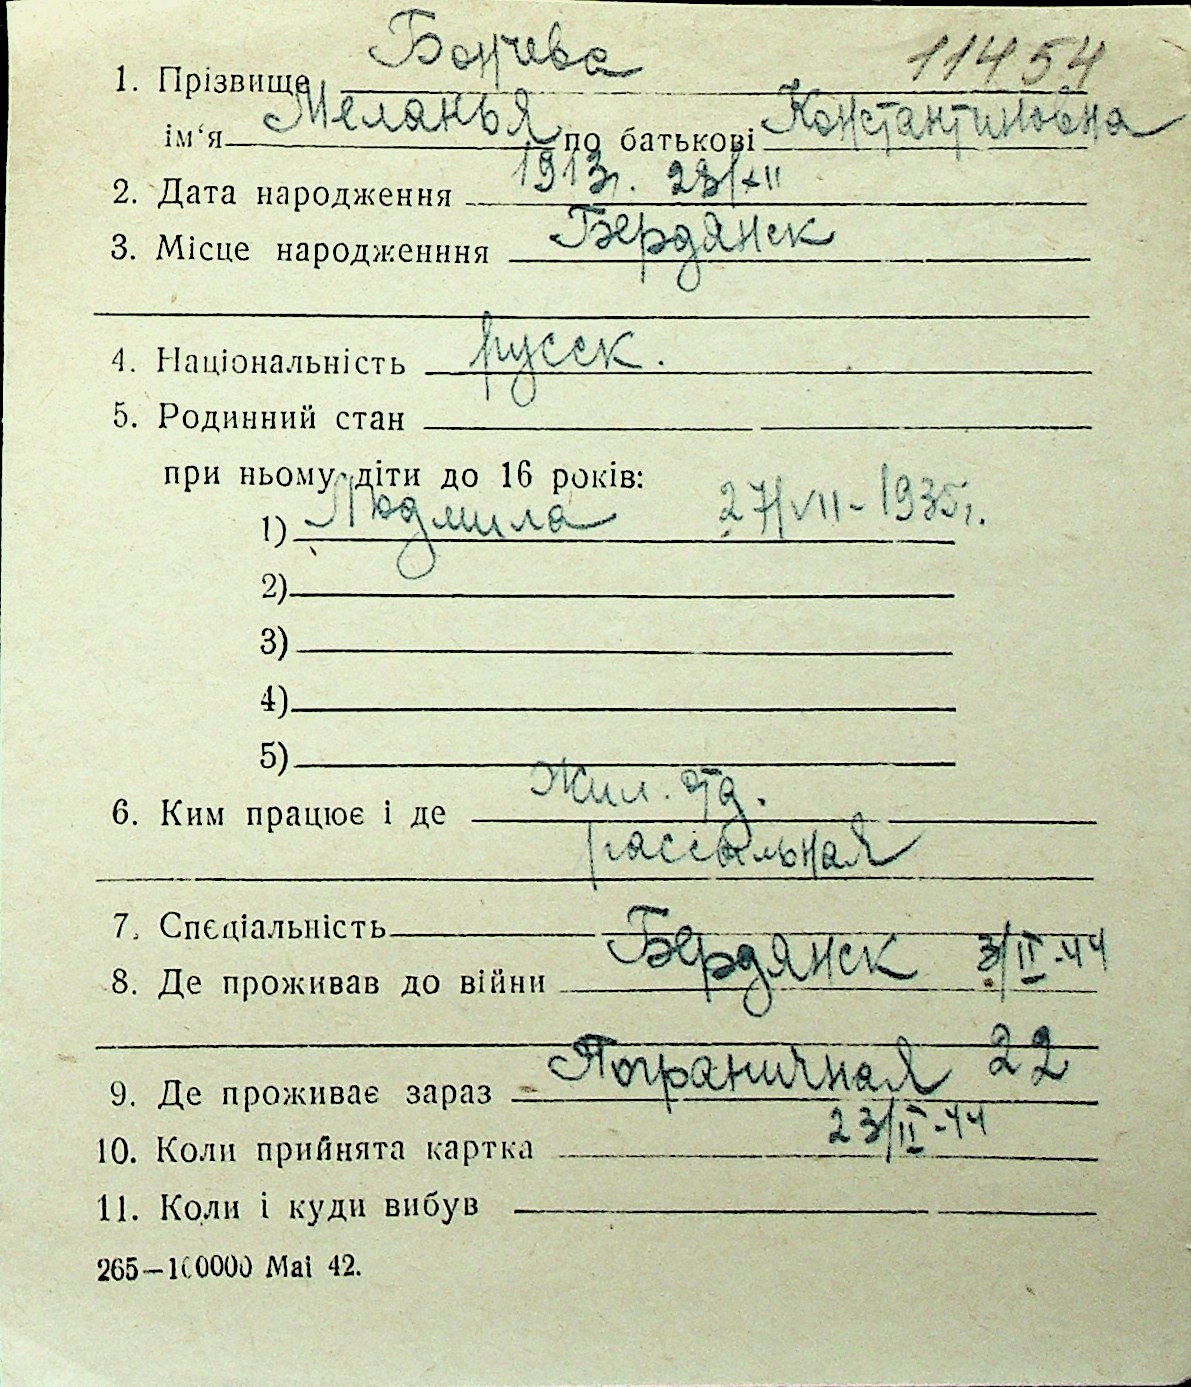 Бончева 11454
1. Прізвище
Меланья Константиновна
ім‘я по батькові
1913г. 28/XII
2. Дата народження
3. Місце народженння Бердянск
4. Національність русск.
5. Родинний стан
при ньому діти до 16 років:
1) Людмила 27/VII-1935г.
2)
3)
4)
5)
Жил. отд.
6. Ким працює і де
рассыльная
7. Спєціальність
8. Де проживав до війни Бердянск 3/II-44
9. Де проживає зараз Пограничная 22
10. Коли прийнята картка 23/II-44
11. Коли і куди вибув
265—100000 Mai 42.